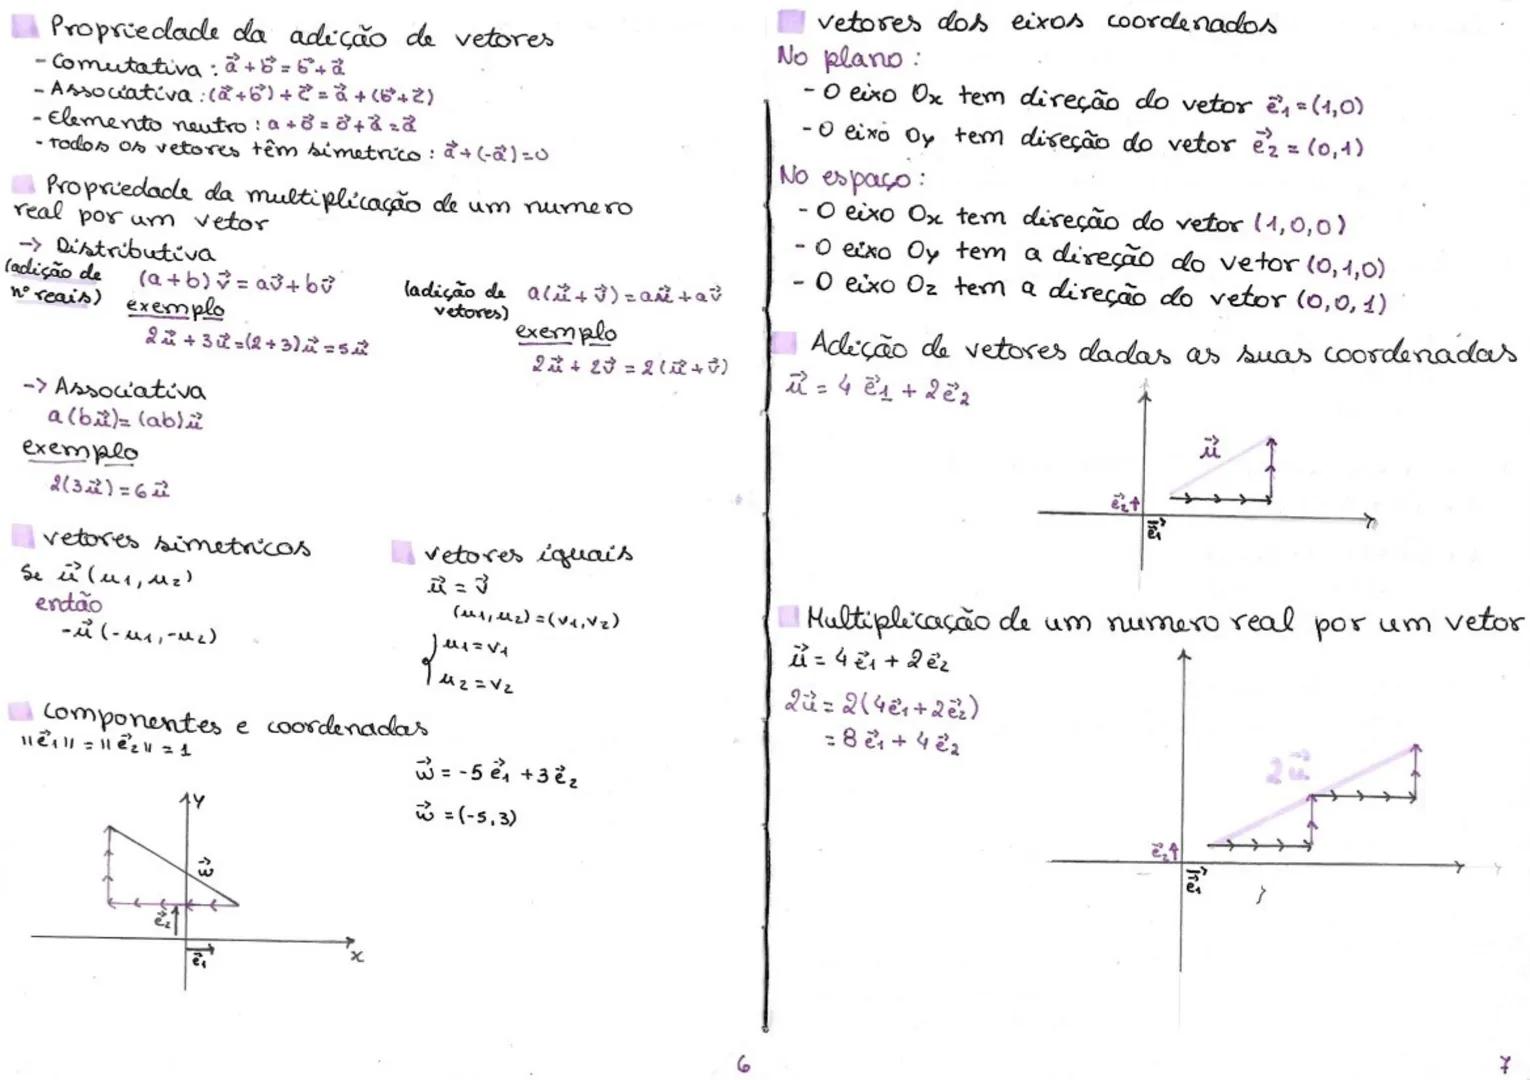 Propriedade da adição de vetores
- Comutativa : a⃗ + b⃗ = b⃗ + a⃗
- Associativa : (a⃗ + b⃗) + c⃗ = a⃗ + (b⃗ + c⃗)
- Elemento neutro : a + 0⃗ = 0⃗ + a⃗ = a⃗
- Todos os vetores têm simetrico : a⃗ + (-a⃗) = 0
Propriedade da multiplicação de um numero
real por um vetor
→ Distributiva
(adição de nº reais) (a+b) v⃗ = av⃗ + bv⃗
exemplo
2u⃗ + 3u⃗ = (2+3)u⃗ = 5u⃗
(adição de vetores) a(u⃗ + v⃗) = au⃗ + av⃗
exemplo
2u⃗ + 2v⃗ = 2(u⃗ + v⃗)
→ Associativa
a(bu⃗) = (ab)u⃗
exemplo
2(3u⃗) = 6u⃗
vetores simetricos
Se u⃗ (u1, u2)
então
-u⃗ (-u1, -u2)
vetores iguais
u⃗ = v⃗
(u1, u2) = (v1, v2)
u1 = v1
u2 = v2
Componentes e coordenadas
||e⃗1|| = ||e⃗2|| = 1
w⃗ = -5 e⃗1 + 3 e⃗2
w⃗ = (-5, 3)
y
w⃗
e⃗2
e⃗1
x
6
vetores dos eixos coordenados
No plano :
- O eixo Ox tem direção do vetor e⃗1 = (1,0)
- O eixo Oy tem direção do vetor e⃗2 = (0,1)
No espaço :
- O eixo Ox tem direção do vetor (1,0,0)
- O eixo Oy tem a direção do vetor (0,1,0)
- O eixo Oz tem a direção do vetor (0,0,1)
Adição de vetores dadas as suas coordenadas
u⃗ = 4 e⃗1 + 2 e⃗2
u⃗
e⃗2
e⃗1
Multiplicação de um numero real por um vetor
u⃗ = 4 e⃗1 + 2 e⃗2
2u⃗ = 2(4e⃗1 + 2e⃗2)
= 8 e⃗1 + 4 e⃗2
2u⃗
e⃗2
e⃗1
7